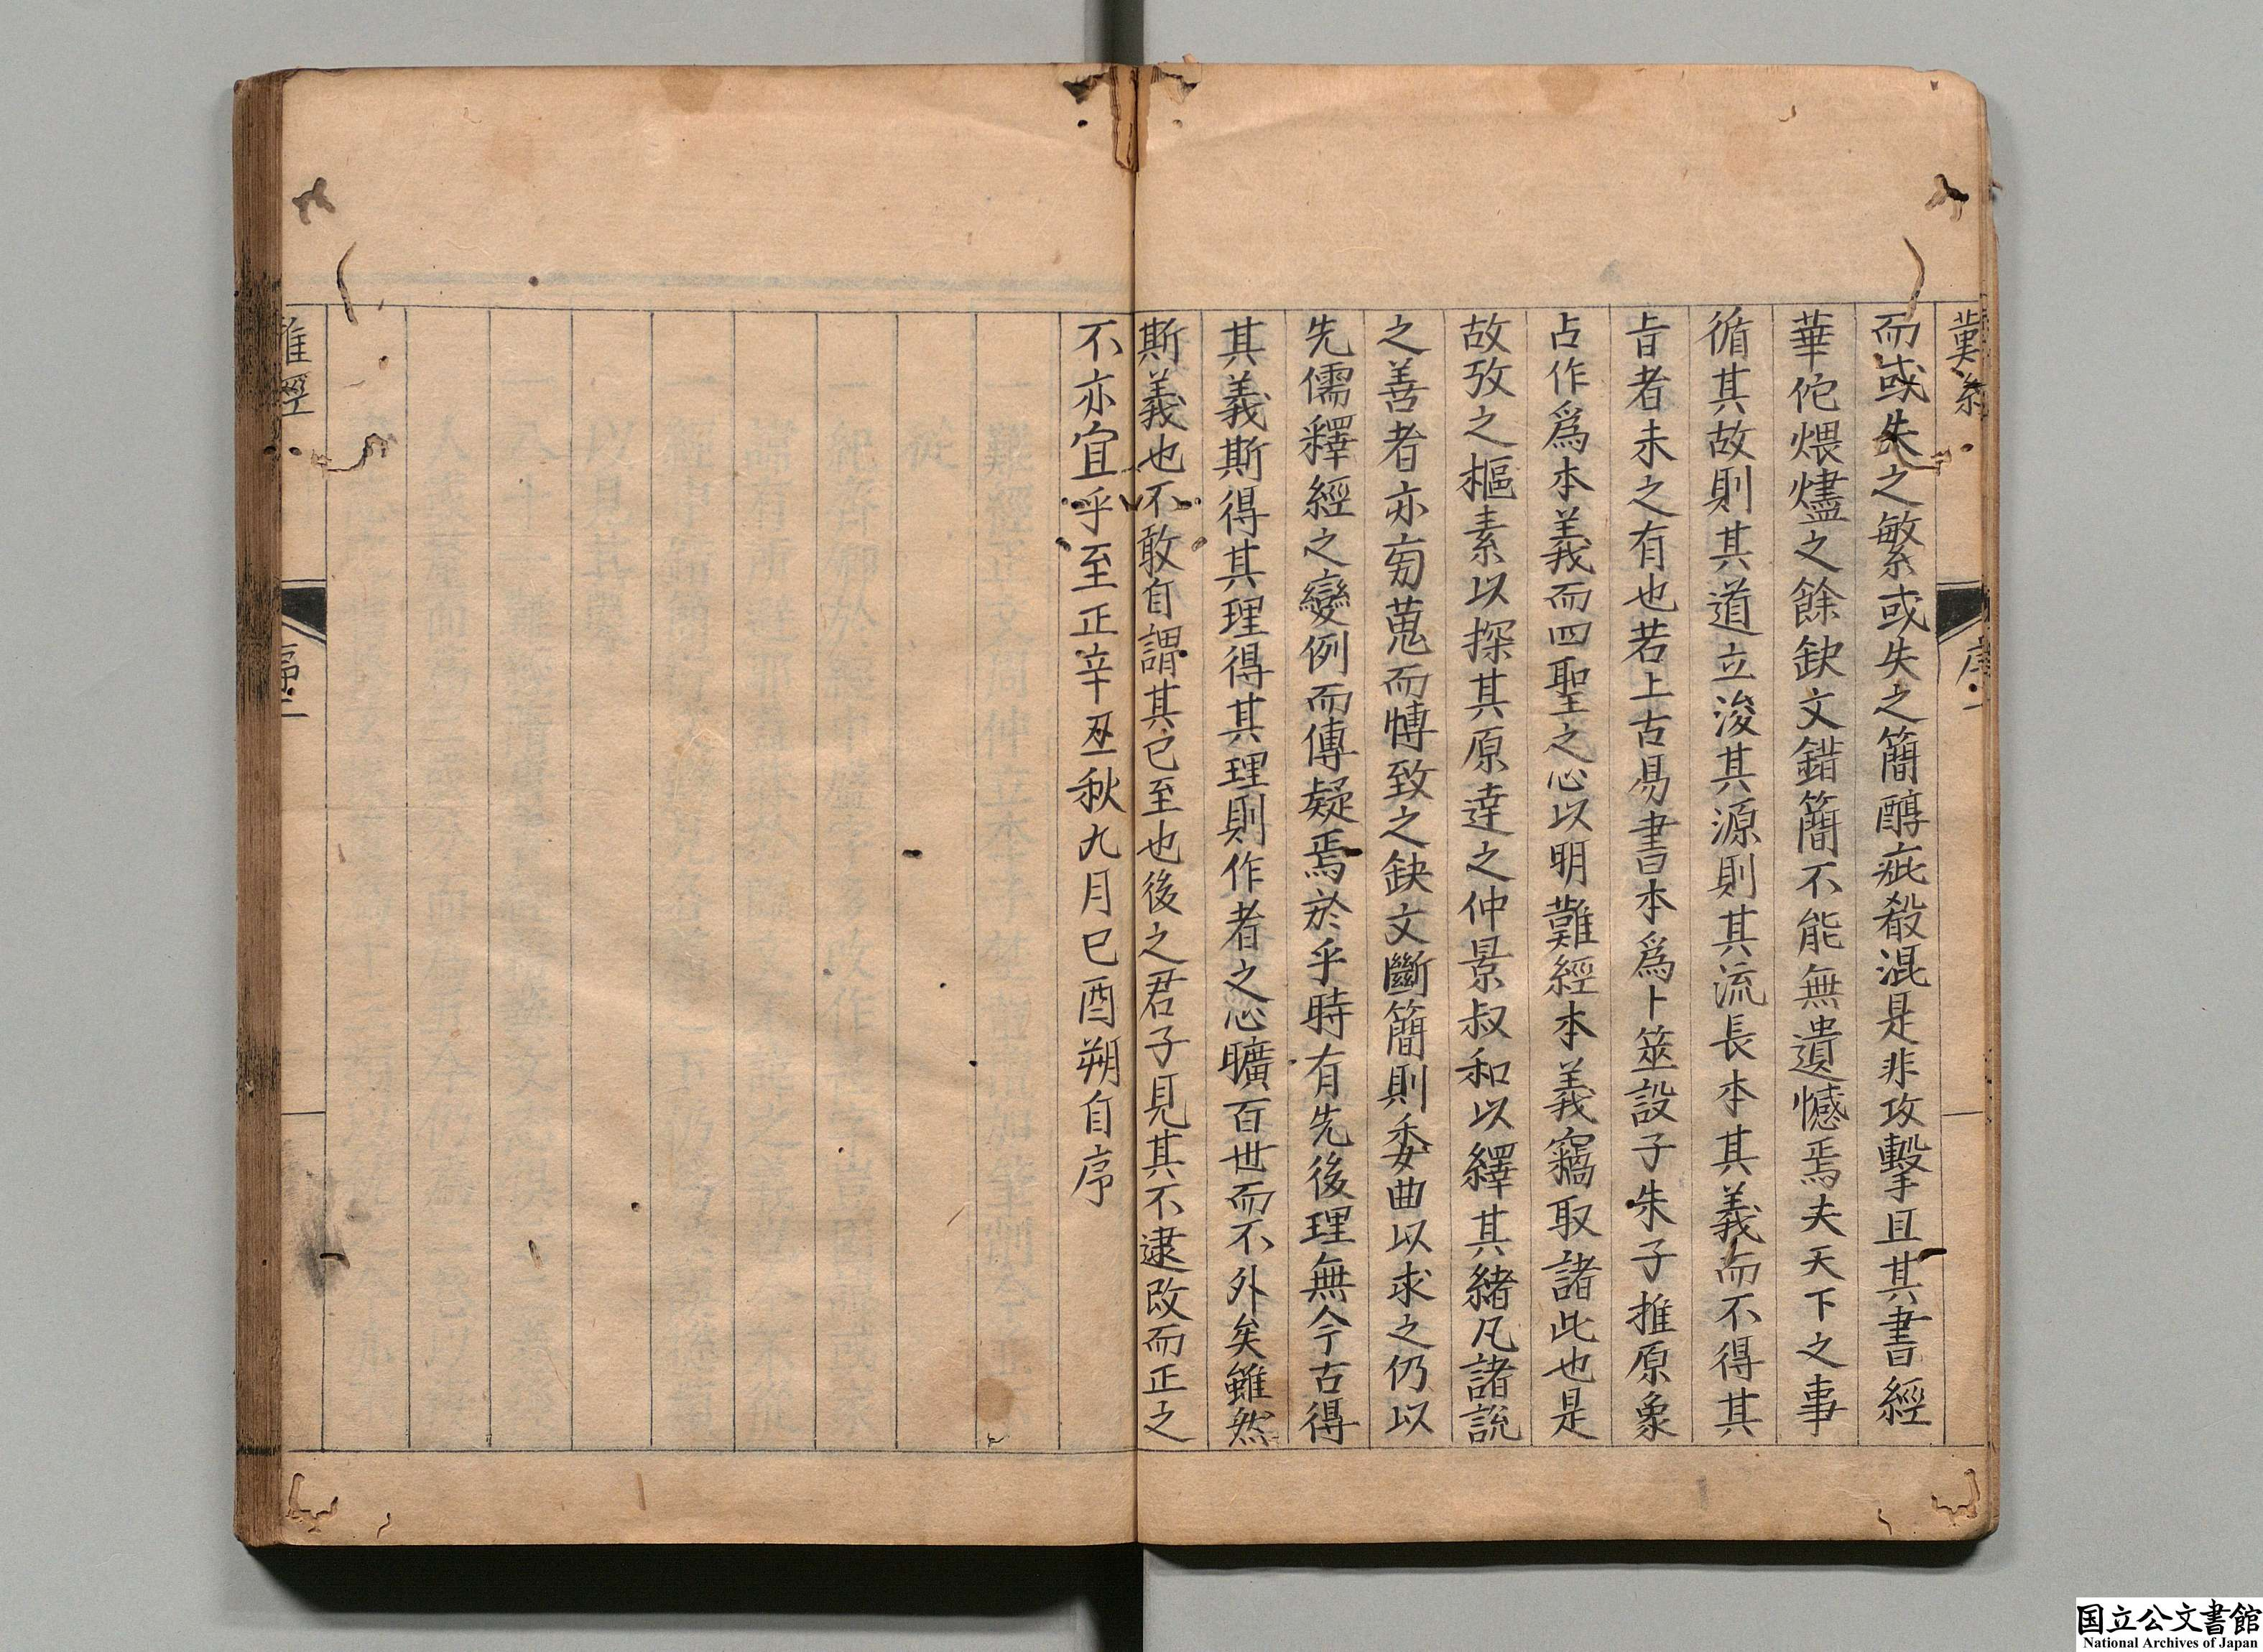 而或失之繁或失之簡醇疵殽混是非攻擊且其書經
華佗煨燼之餘缺文錯簡不能無遺憾焉夫天下之事
循其故則其道立浚其源則其流長本其義而不得其
旨者未之有也若上古易書本爲卜筮設子朱子推原象
占作爲本義而四聖之心以明難經本義竊取諸此也是
故攷之樞素以探其原達之仲景叔和以繹其緒凡諸說
之善者亦旁蒐而愽致之缺文斷簡則委曲以求之仍以
先儒釋經之變例而傳疑焉於乎時有先後理無今古得
其義斯得其理得其理則作者之心曠百世而不外矣雖然
斯義也不敢自謂其已至也後之君子見其不逮改而正之
不亦宜乎至正辛丑秋九月己酉朔自序
序二
国立公文書館
National Archives of Japan